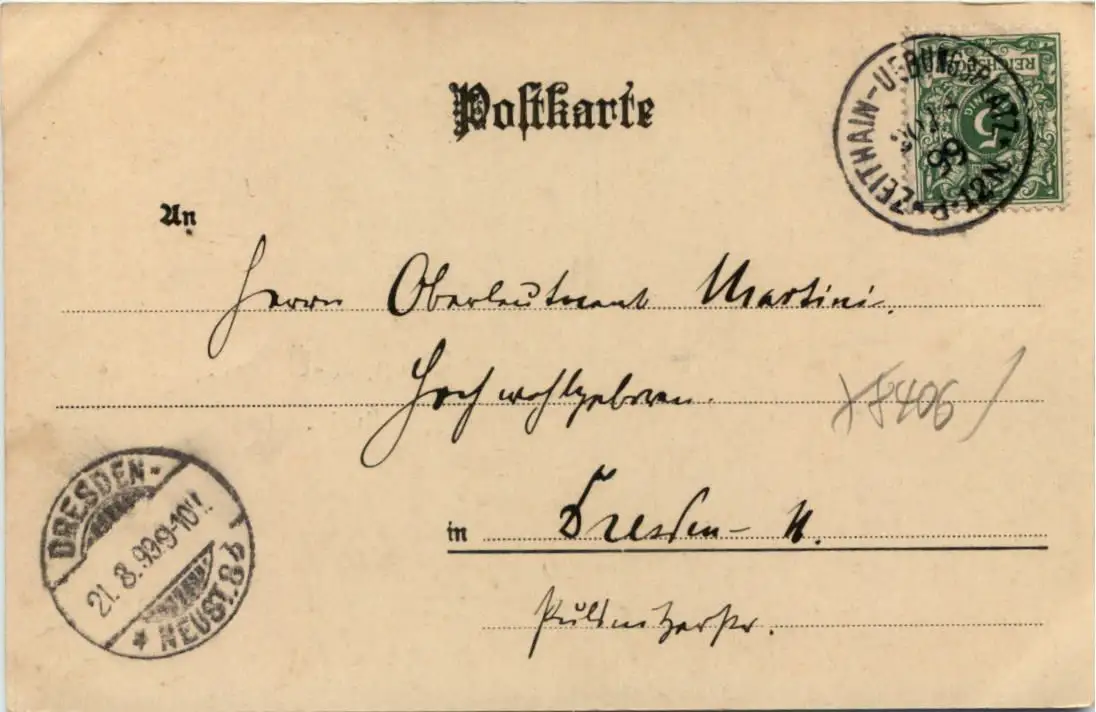 Postkarte
REICHSPOST
5
ZEITHAIN-UEBUNGSPLATZ
99
12N.
An
Herrn Oberleutnant Martini.
Hochwohlgeboren.
8406
in Dresden- N.
Pulsnitzerstr.
DRESDEN-
21.8.99.9-10V.
* NEUST. 8 q